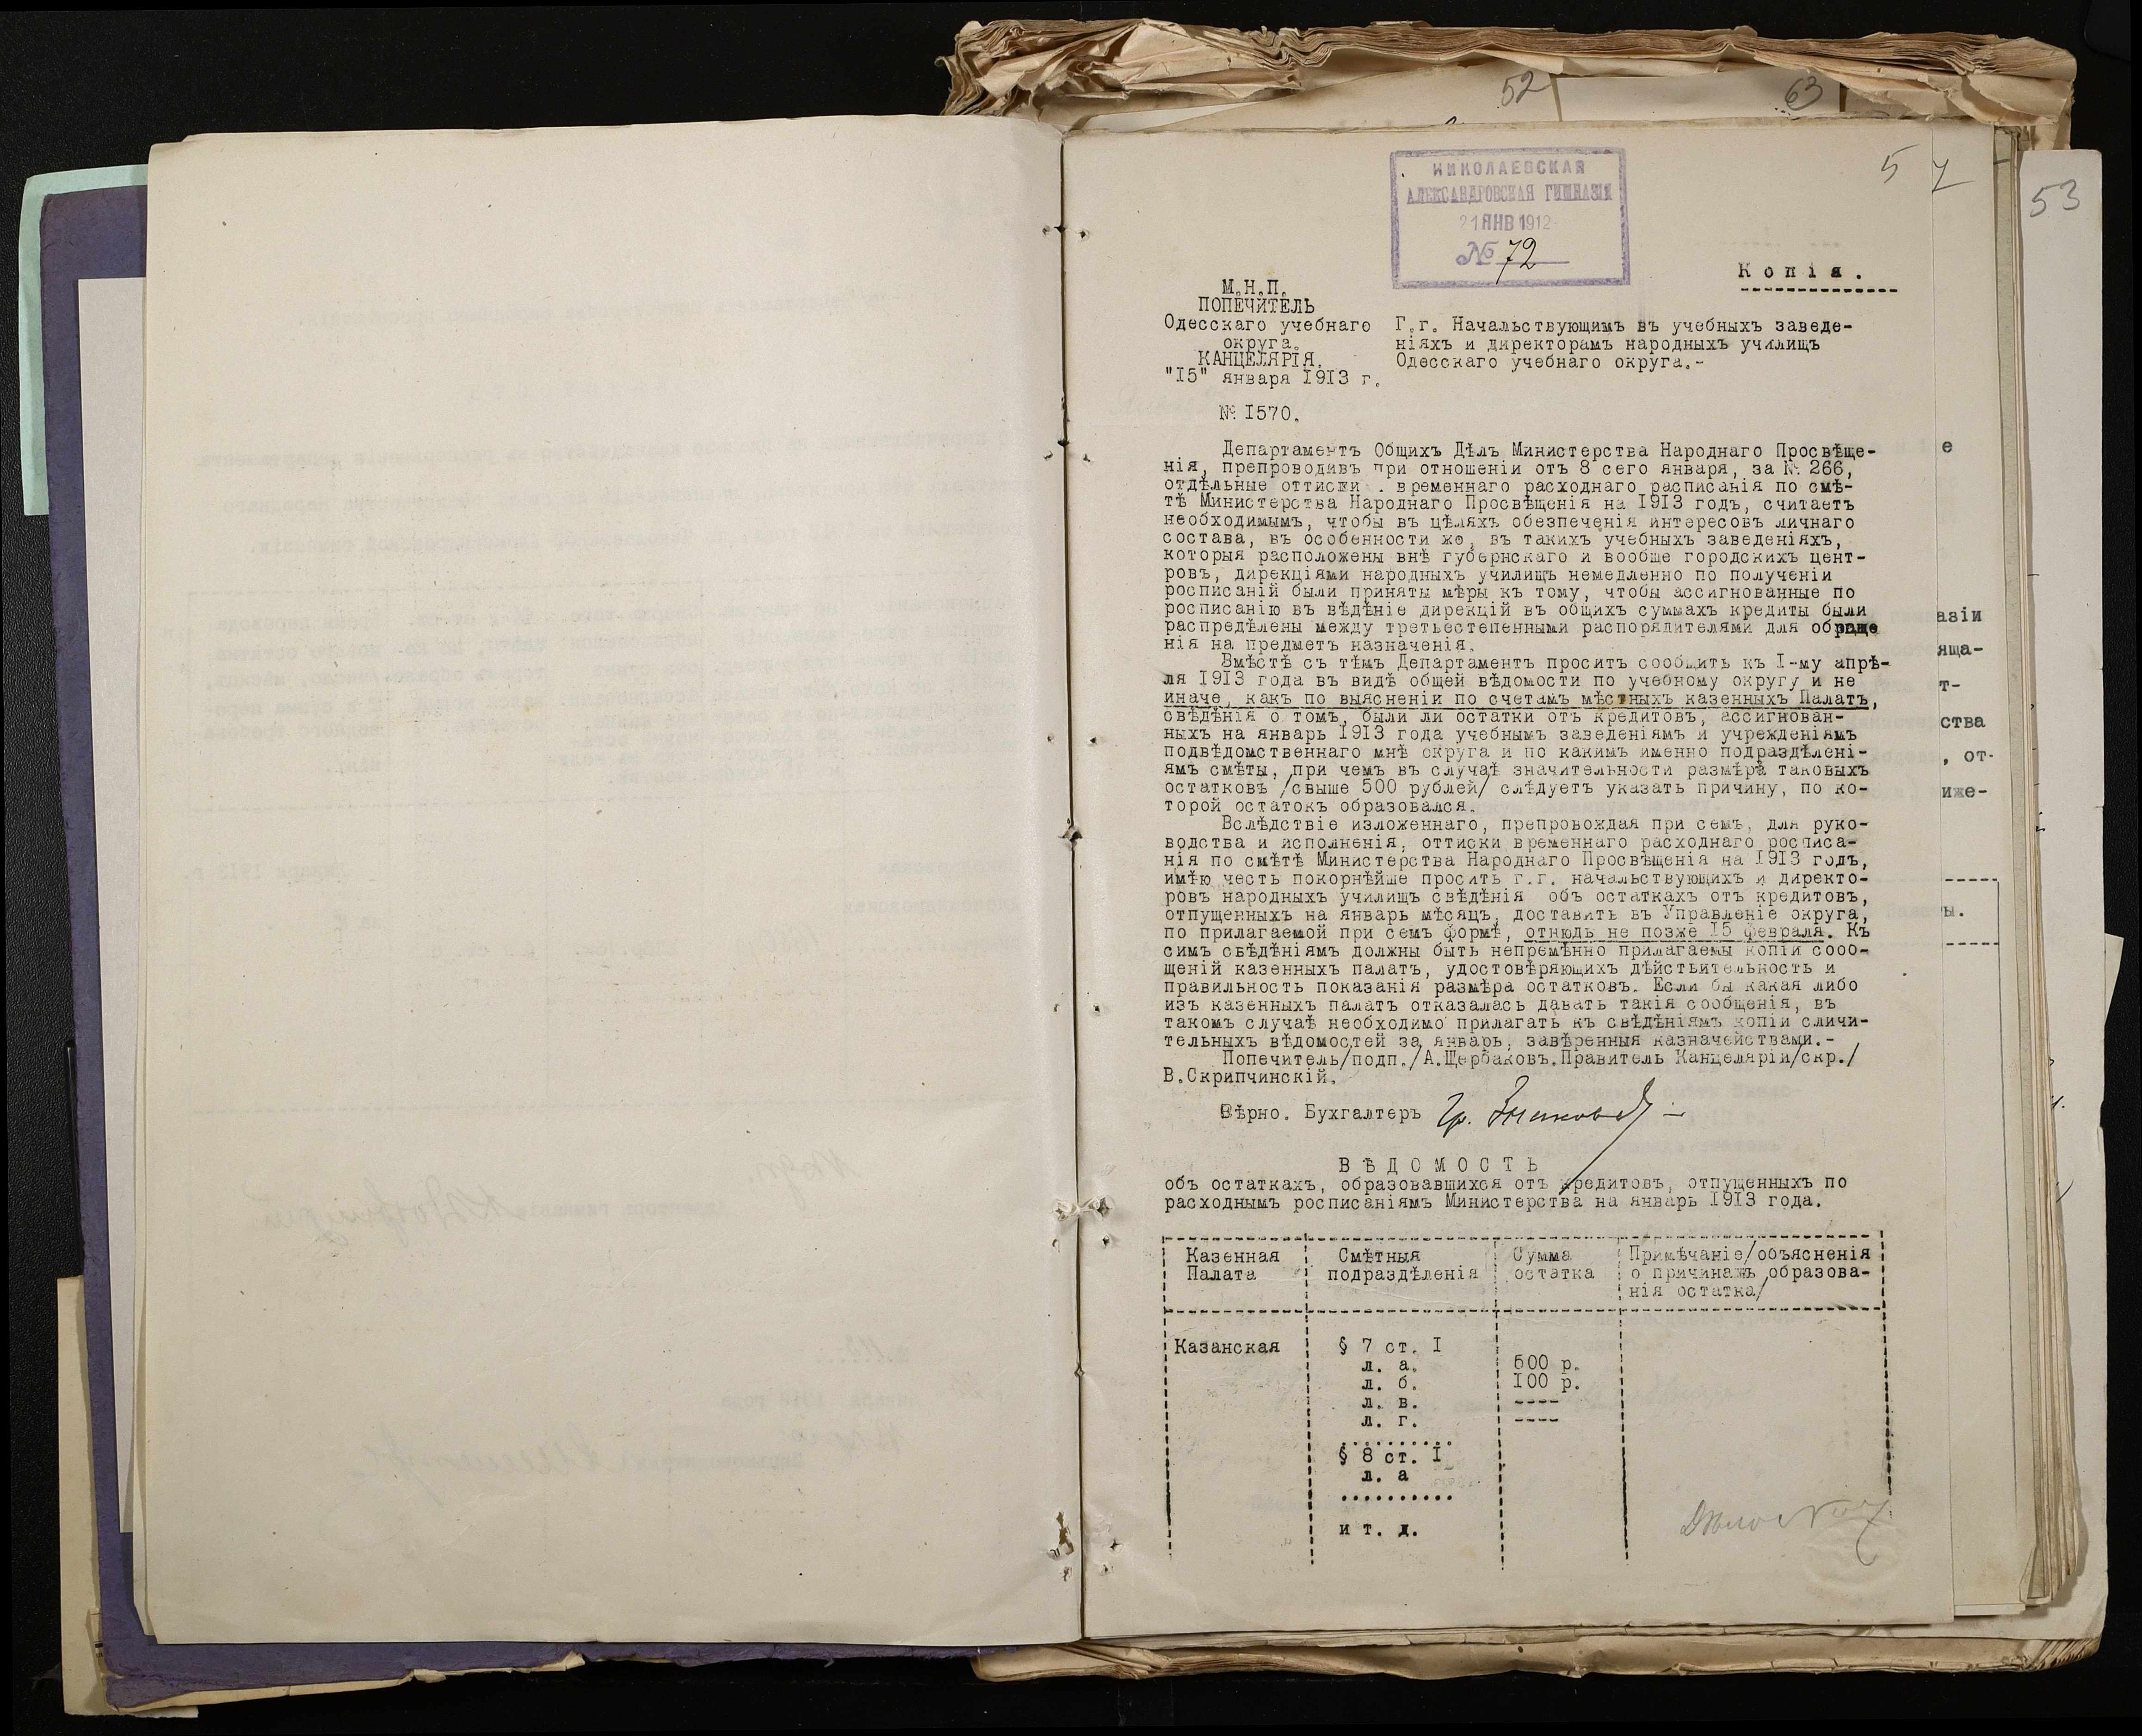 52
63
53
5
НИКОЛАЕВСКАЯ
АЛЕКСАНДРОВСКАЯ ГИМНАЗІЯ
21 ЯНВ 1912
№ 72
Копія.
М.Н.П.
ПОПЕЧИТЕЛЬ
Одесскаго учебнаго
округа.
КАНЦЕЛЯРІЯ.
"I5" января I9I3 г.
№ I570.
Г.г. Начальствующимъ въ учебныхъ заведе-
ніяхъ и директорамъ народныхъ училищъ
Одесскаго учебнаго округа.-
Департаментъ Общихъ Дѣлъ Министерства Народнаго Просвѣще-
нія, препроводивъ при отношеніи отъ 8 сего января, за № 266,
отдѣльные оттиски . временнаго расходнаго расписанія по смѣ-
тѣ Министерства Народнаго Просвѣщенія на I9I3 годъ, считаетъ
необходимымъ, чтобы въ цѣляхъ обезпеченія интересовъ личнаго
состава, въ особенности же, въ такихъ учебныхъ заведеніяхъ,
которыя расположены внѣ губернскаго и вообще городскихъ цент-
ровъ, дирекціями народныхъ училищъ немедленно по полученіи
росписаній были приняты мѣры къ тому, чтобы ассигнованные по
росписанію въ вѣдѣніе дирекцій въ общихъ суммахъ кредиты были
распредѣлены между третьестепенными распорядителями для обраще
нія на предметъ назначенія.
Вмѣстѣ съ тѣмъ Департаментъ просить сообщить къ I-му апрѣ-
ля I9I3 года въ видѣ общей вѣдомости по учебному округу и не
иначе, какъ по выясненіи по счетамъ мѣстныхъ казенныхъ Палатъ,
свѣдѣнія о томъ, были ли остатки отъ кредитовъ, ассигнован-
ныхъ на январь I9I3 года учебнымъ заведеніямъ и учрежденіямъ
подвѣдомственнаго мнѣ округа и по какимъ именно подраздѣлені-
ямъ смѣты, при чемъ въ случаѣ значительности размѣра таковыхъ
остатковъ /свыше 500 рублей/ слѣдуетъ указать причину, по ко-
торой остатокъ образовался.
Вслѣдствіе изложеннаго, препровождая при семъ, для руко-
водства и исполненія, оттиски временнаго расходнаго росписа-
нія по смѣтѣ Министерства Народнаго Просвѣщенія на I9I3 годъ,
имѣю честь покорнѣйше просить г.г. начальствующихъ и директо-
ровъ народныхъ училищъ свѣдѣнія объ остаткахъ отъ кредитовъ,
отпущенныхъ на январь мѣсяцъ, доставить въ Управленіе округа,
по прилагаемой при семъ формѣ, отнюдь не позже I5 февраля. Къ
симъ свѣдѣніямъ должны быть непремѣнно прилагаемы копіи сооб-
щеній казенныхъ палатъ, удостовѣряющихъ дѣйствительность и
правильность показанія размѣра остатковъ. Если бы какая либо
изъ казенныхъ палатъ отказалась давать такія сообщенія, въ
такомъ случаѣ необходимо прилагать къ свѣдѣніямъ копіи сличи-
тельныхъ вѣдомостей за январь, завѣренныя казначействами.-
Попечитель/подп./А.Щербаковъ.Правитель Канцеляріи/скр./
В.Скрипчинскій.
Вѣрно. Бухгалтеръ
ВѢДОМОСТЬ
объ остаткахъ, образовавшихся отъ кредитовъ, отпущенныхъ по
расходнымъ росписаніямъ Министерства на январь I9I3 года.
Казенная Палата
Смѣтныя подраздѣленія
Сумма остатка
Примѣчаніе/объясненія
о причинахъ образова-
нія остатка/
Казанская § 7 ст. I
л. а. 500 р.
л. б. I00 р.
л. в. ----
л. г. ----
..........
§ 8 ст. I
л. а
..........
и т. д.
е
азіи
яща-
т-
ства
, от-
иже-
ы.